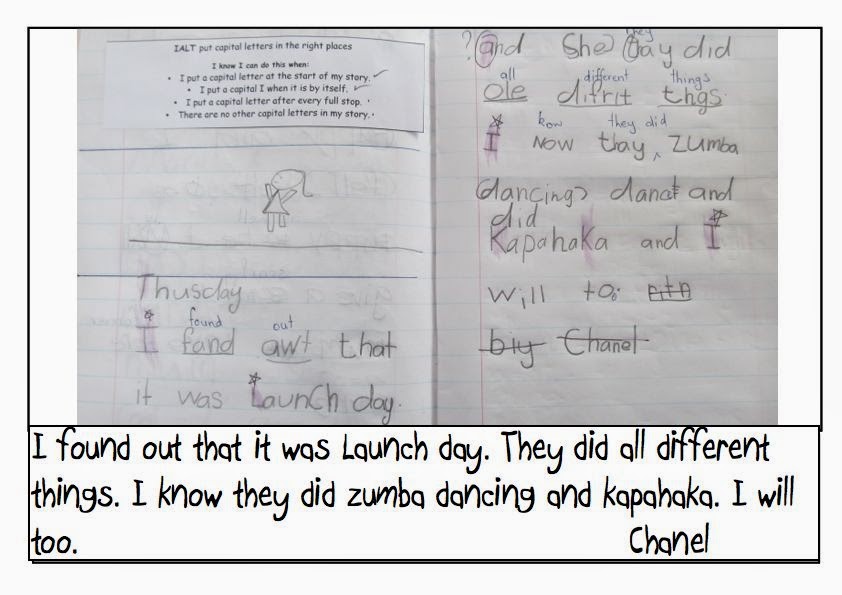 IALT put capital letters in the right places
I know I can do this when:
• I put a capital letter at the start of my story. ✓
• I put a capital I when it is by itself. ✓
• I put a capital letter after every full stop.
• There are no other capital letters in my story.
Thusday
found out
I fand awt that
it was Launch day.
they
? and She tay did
all different things
ole difrit thgs.
know they did
I Now thay, zumba
dancing danct and
did
Kapahaka and I
will to.
biy Chanel
I found out that it was Launch day. They did all different
things. I know they did zumba dancing and kapahaka. I will
too. Chanel